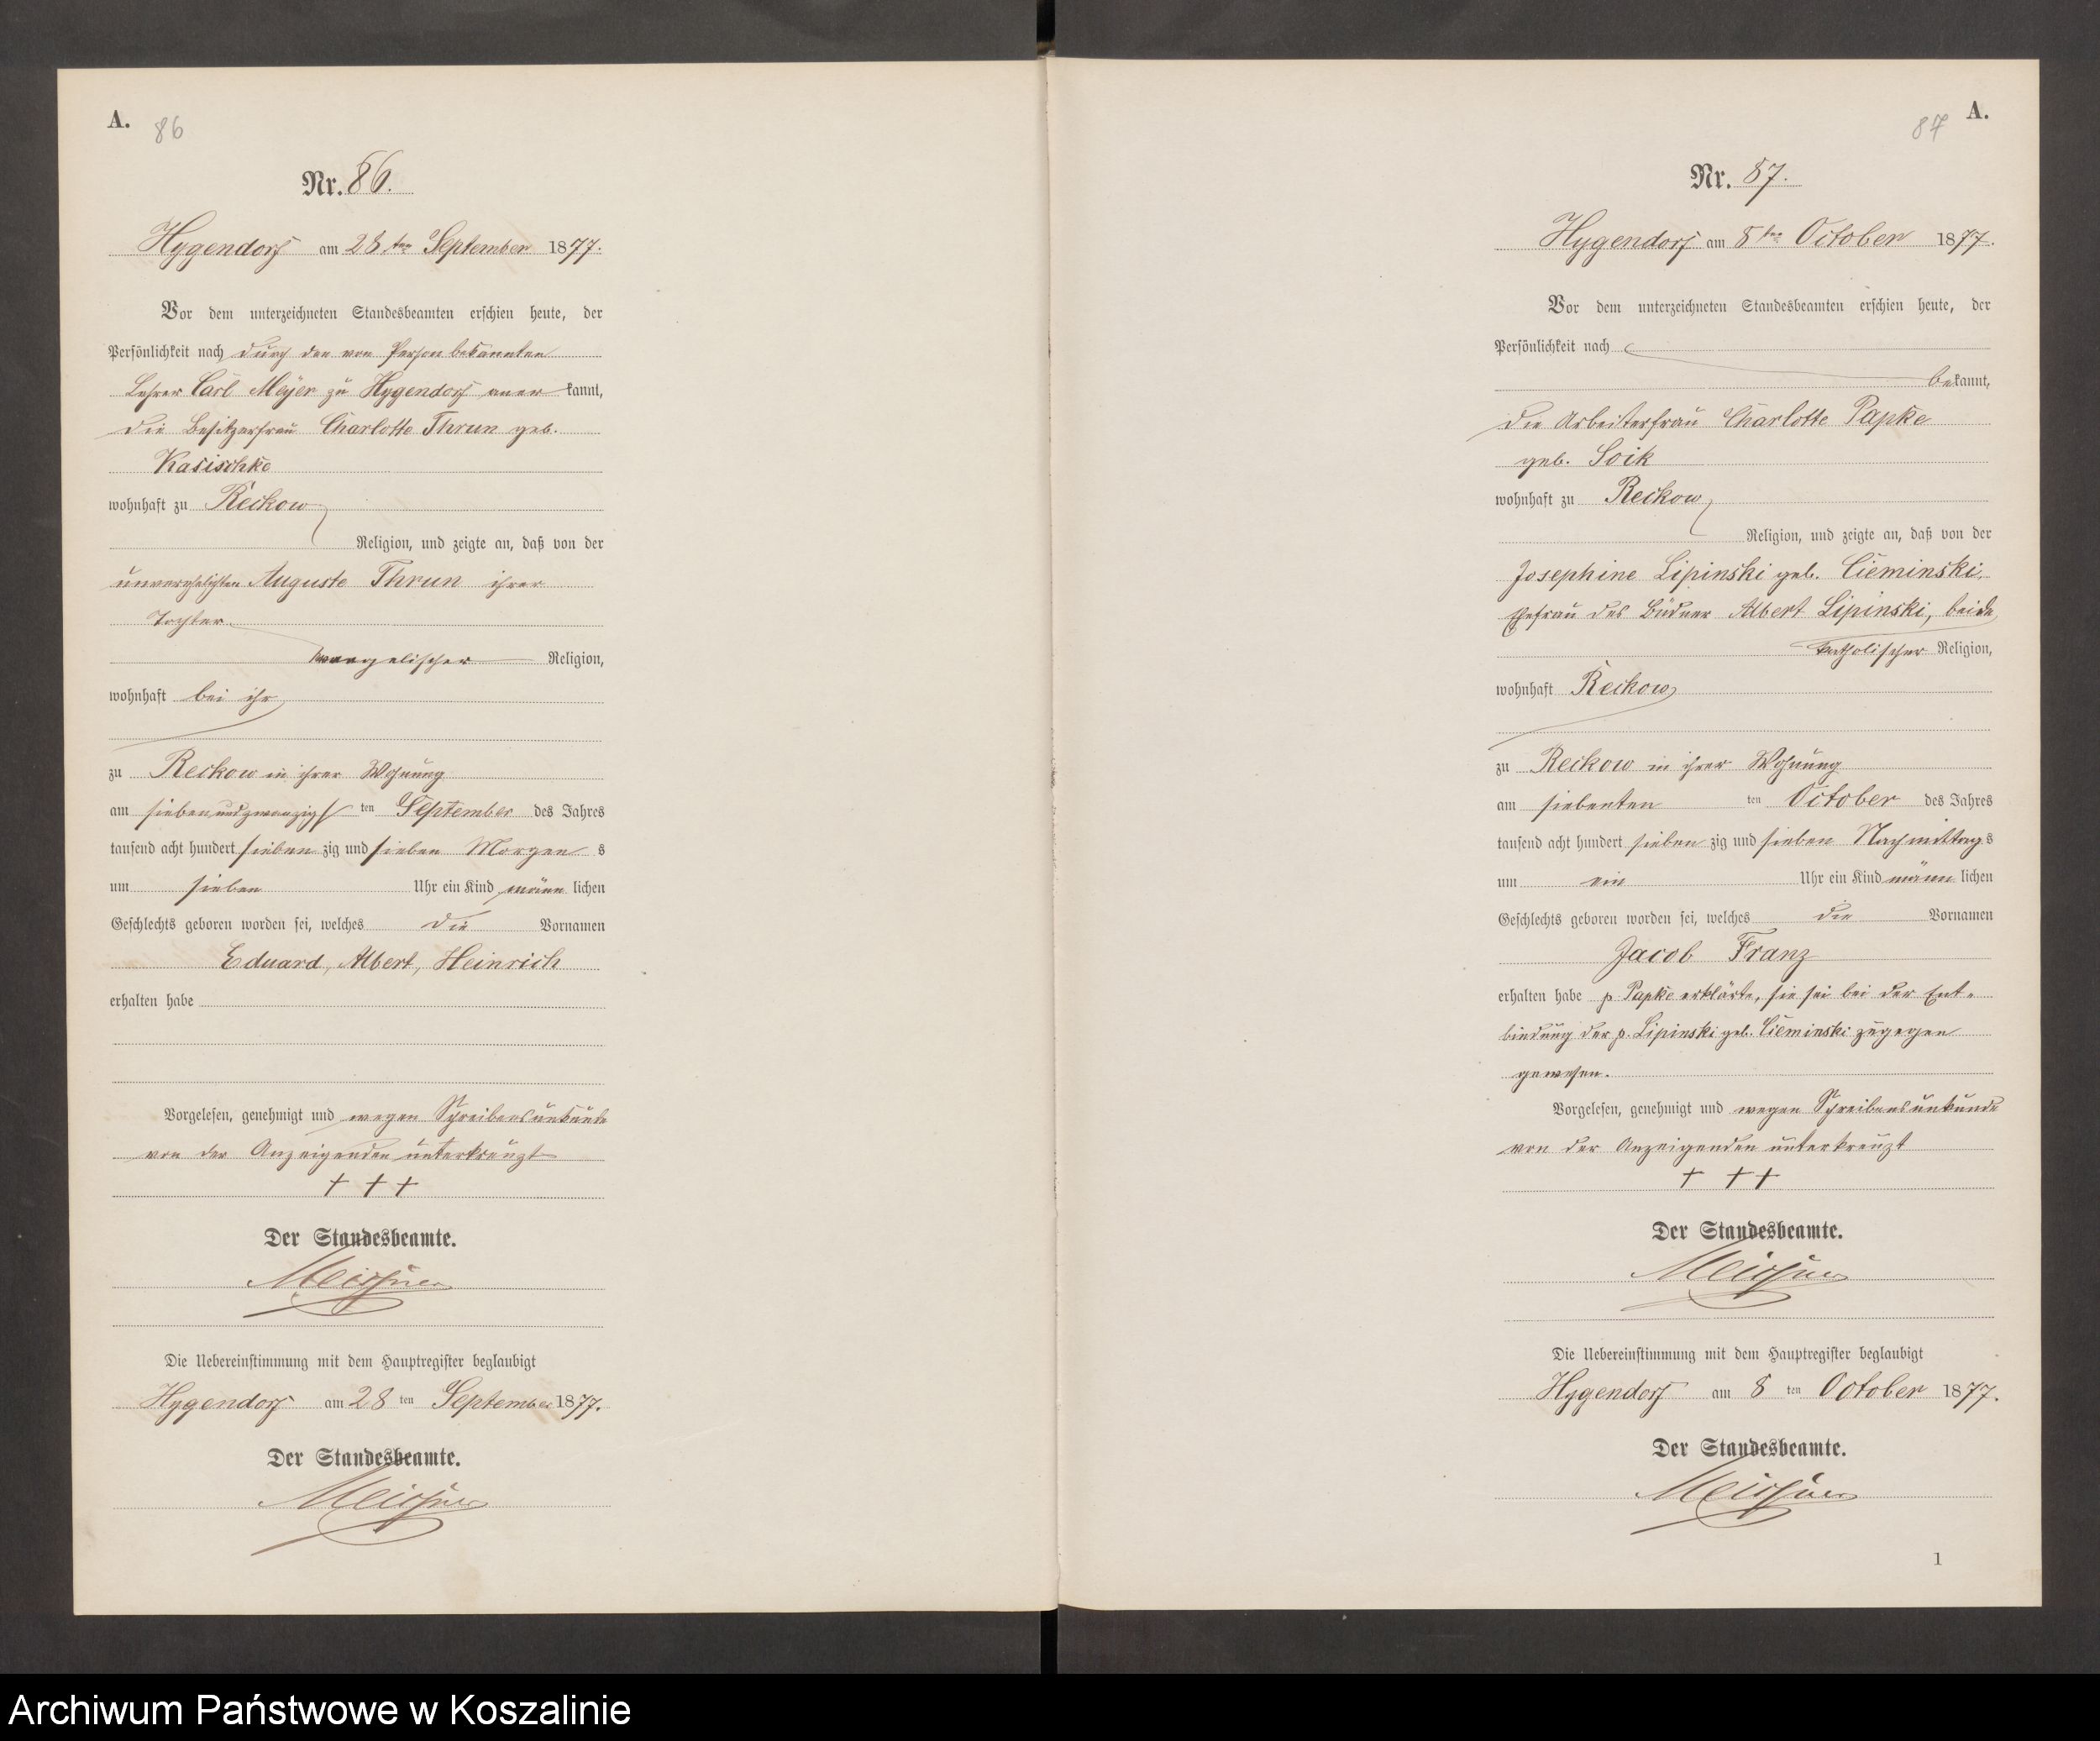 A.
86
Nr. 86.
Hygendorf am 28 ten September 1877.
Vor dem unterzeichneten Standesbeamten erschien heute, der
Persönlichkeit nach durch den von Person bekannten
Lehrer Carl Meyer zu Hygendorf anerkannt,
die Besitzerfrau Charlotte Thrun geb.
Kasischke
wohnhaft zu Reckow
Religion, und zeigte an, daß von der
unverehelichten Auguste Thrun ihrer
Tochter
evangelischer Religion,
wohnhaft bei ihr
zu Reckow in ihrer Wohnung
am siebenundzwanzigsten September des Jahres
tausend acht hundert siebenzig und sieben Morgens
um sieben Uhr ein Kind männlichen
Geschlechts geboren worden sei, welches die Vornamen
Eduard, Albert, Heinrich
erhalten habe
Vorgelesen, genehmigt und wegen Schreibensunkunde
von der Anzeigenden unterkreuzt
+ + +
Der Standesbeamte.
Meissner
Die Uebereinstimmung mit dem Hauptregister beglaubigt
Hygendorf am 28 ten September 1877.
Der Standesbeamte.
Meissner
87
A.
Nr. 87.
Hygendorf am 8 ten October 1877.
Vor dem unterzeichneten Standesbeamten erschien heute, der
Persönlichkeit nach
bekannt,
die Arbeiterfrau Charlotte Papke
geb. Soik
wohnhaft zu Reckow
Religion, und zeigte an, daß von der
Josephine Lipinski geb. Cieminski,
Ehefrau des Büdner Albert Lipinski, beide
katholischer Religion,
wohnhaft Reckow
zu Reckow in ihrer Wohnung
am siebenten ten October des Jahres
tausend acht hundert siebenzig und sieben Nachmittags
um ein Uhr ein Kind männlichen
Geschlechts geboren worden sei, welches die Vornamen
Jacob Franz
erhalten habe p. Papke erklärte, sie sei bei der Ent-
bindung der p. Lipinski geb. Cieminski zugegen
gewesen.
Vorgelesen, genehmigt und wegen Schreibensunkunde
von der Anzeigenden unterkreuzt
+ + +
Der Standesbeamte.
Meissner
Die Uebereinstimmung mit dem Hauptregister beglaubigt
Hygendorf am 8 ten October 1877.
Der Standesbeamte.
Meissner
1
Archiwum Państwowe w Koszalinie